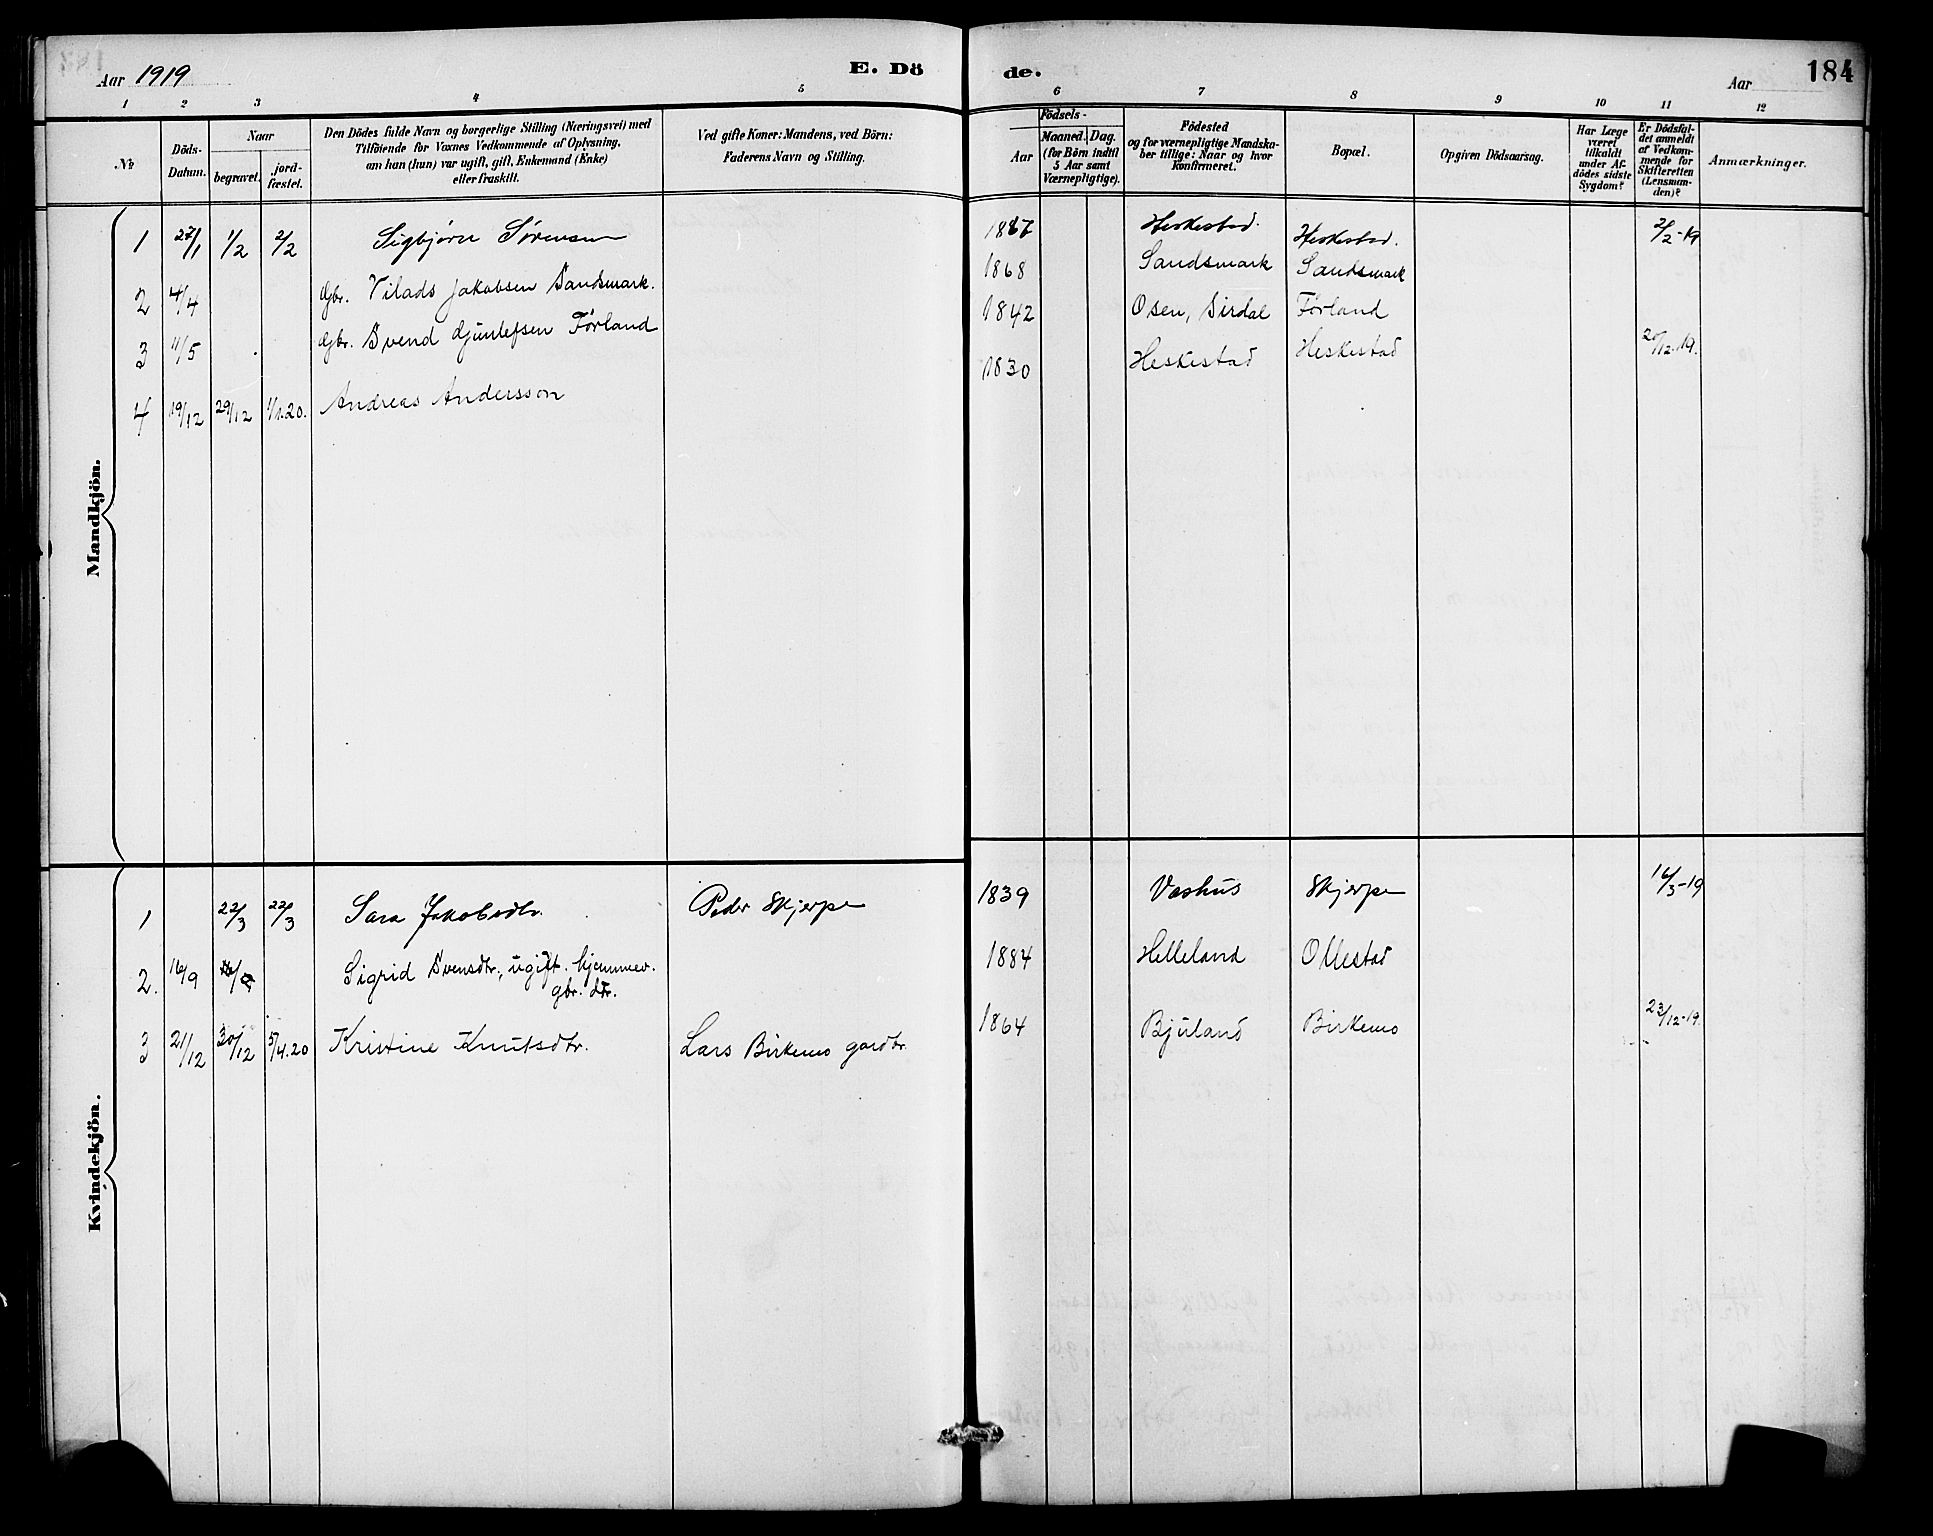 Aar 1919 E. Dö de. Aar 184
1 2 3 4 5 6 7 8 9 10 11 12
No
Döds-
Datum.
Naar
begravet.
jord-
fæstet.
Den Dödes fulde Navn og borgerlige Stilling (Næringsvei) med
Tilföiende for Voxnes Vedkommende af Oplysning,
om han (hun) var ugift, gift, Enkemand (Enke)
eller fraskilt.
Ved gifte Koner: Mandens, ved Börn:
Faderens Navn og Stilling.
Födsels-
Aar
Maaned. Dag.
(for Börn indtil
5 Aar samt
Værnepligtige).
Födested
og for værnepligtige Mandska-
ber tillige: Naar og hvor
konfirmeret.
Bopæl.
Opgiven Dödsaarsag.
Har Læge
været
tilkaldt
under Af-
dödes sidste
Sygdom?
Er Dödsfal-
det anmeldt
af Vedkom-
mende for
Skifteretten
(Lensman-
den)?
Anmærkninger.
Mandkjön.
1 27/1 1/2 2/2 Sigbjørn Sørensen Heskestad. Heskestad. 2/2-19
2 4/4 Gbr. Vilads Jakobsen Sandsmark. 1868 Sandsmark Sandsmark
3 11/5 Gbr. Svend Gunlefsen Førland 1842 Osen, Sirdal Førland
4 19/12 29/12 1/1.20. Andreas Andersson 1830 Heskestad Heskestad 20/12-19.
Kvindekjön.
1 22/3 22/3 Sara Jakobsdtr. Peder Skjerpe 1839 Vashus Skjerpe 16/3-19
2. 16/9 Sigrid Svensdtr., ugift. hjemmev. 1884 Helleland Ollestad
gbr. dtr.
3 21/12 30/12 5/4.20 Kristine Knutsdtr. Lars Birkemo gardbr. 1864 Bjuland Birkemo 23/12-19.